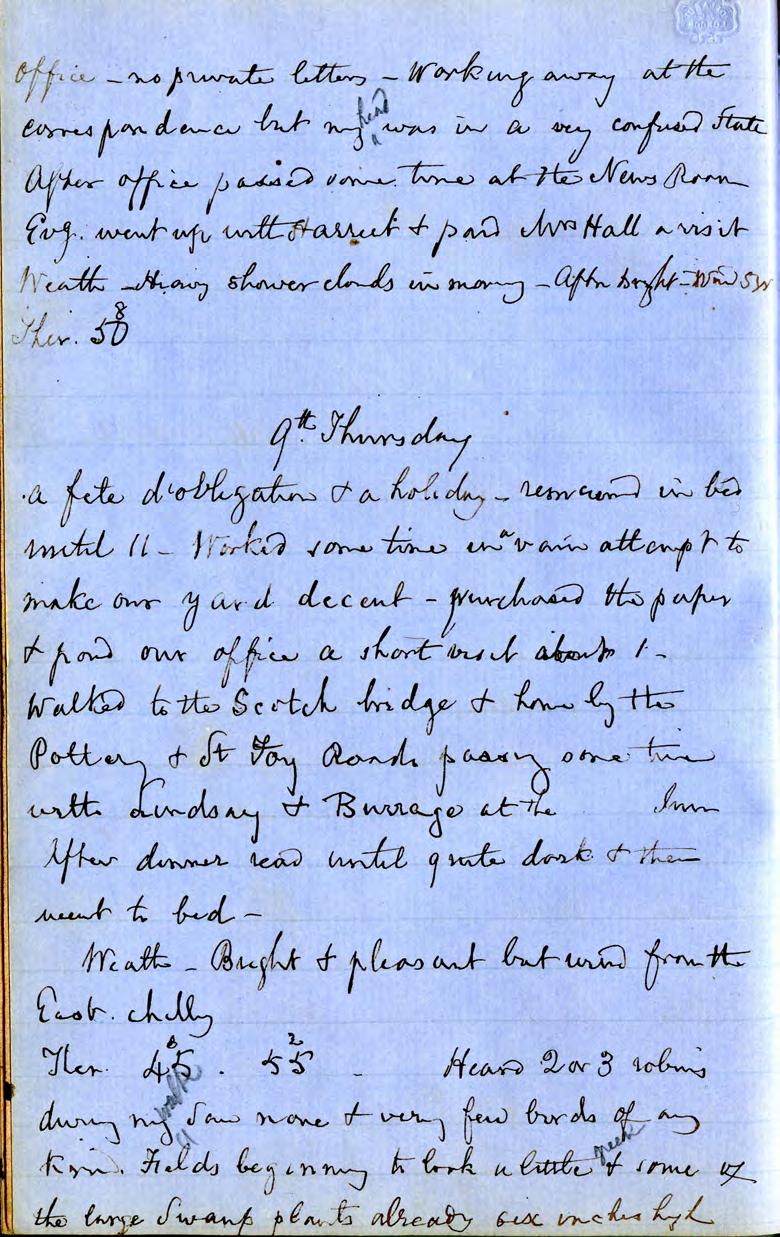 Office – no private letters – Working away at the
correspondence but my head was in a very confused State
After office passed some time at the News Room
Evg. went up with Harriet & paid Mrs Hall a visit
Weath – Heavy shower clouds in morng – Aftn bright – Wind SW
Ther. 50 8
9th Thursday
a fete d'obligation & a holiday – remained in bed
until 11 – Worked some time in a vain attempt to
make our yard decent – purchased the paper
& paid our office a short visit about 1 –
Walked to the Scotch bridge & home by the
Pottery & St Foy Roads passing some time
with Lindsay & Burrage at the Inn
After dinner read until quite dark & then
went to bed –
Weath – Bright & pleasant but wind from the
East. chilly
Ther. 45 8 . 55 2 – Heard 2 or 3 robins
during my walk Saw none & very few birds of any
kind. Fields beginning to look a little green & some of
the large Swamp plants already six inches high